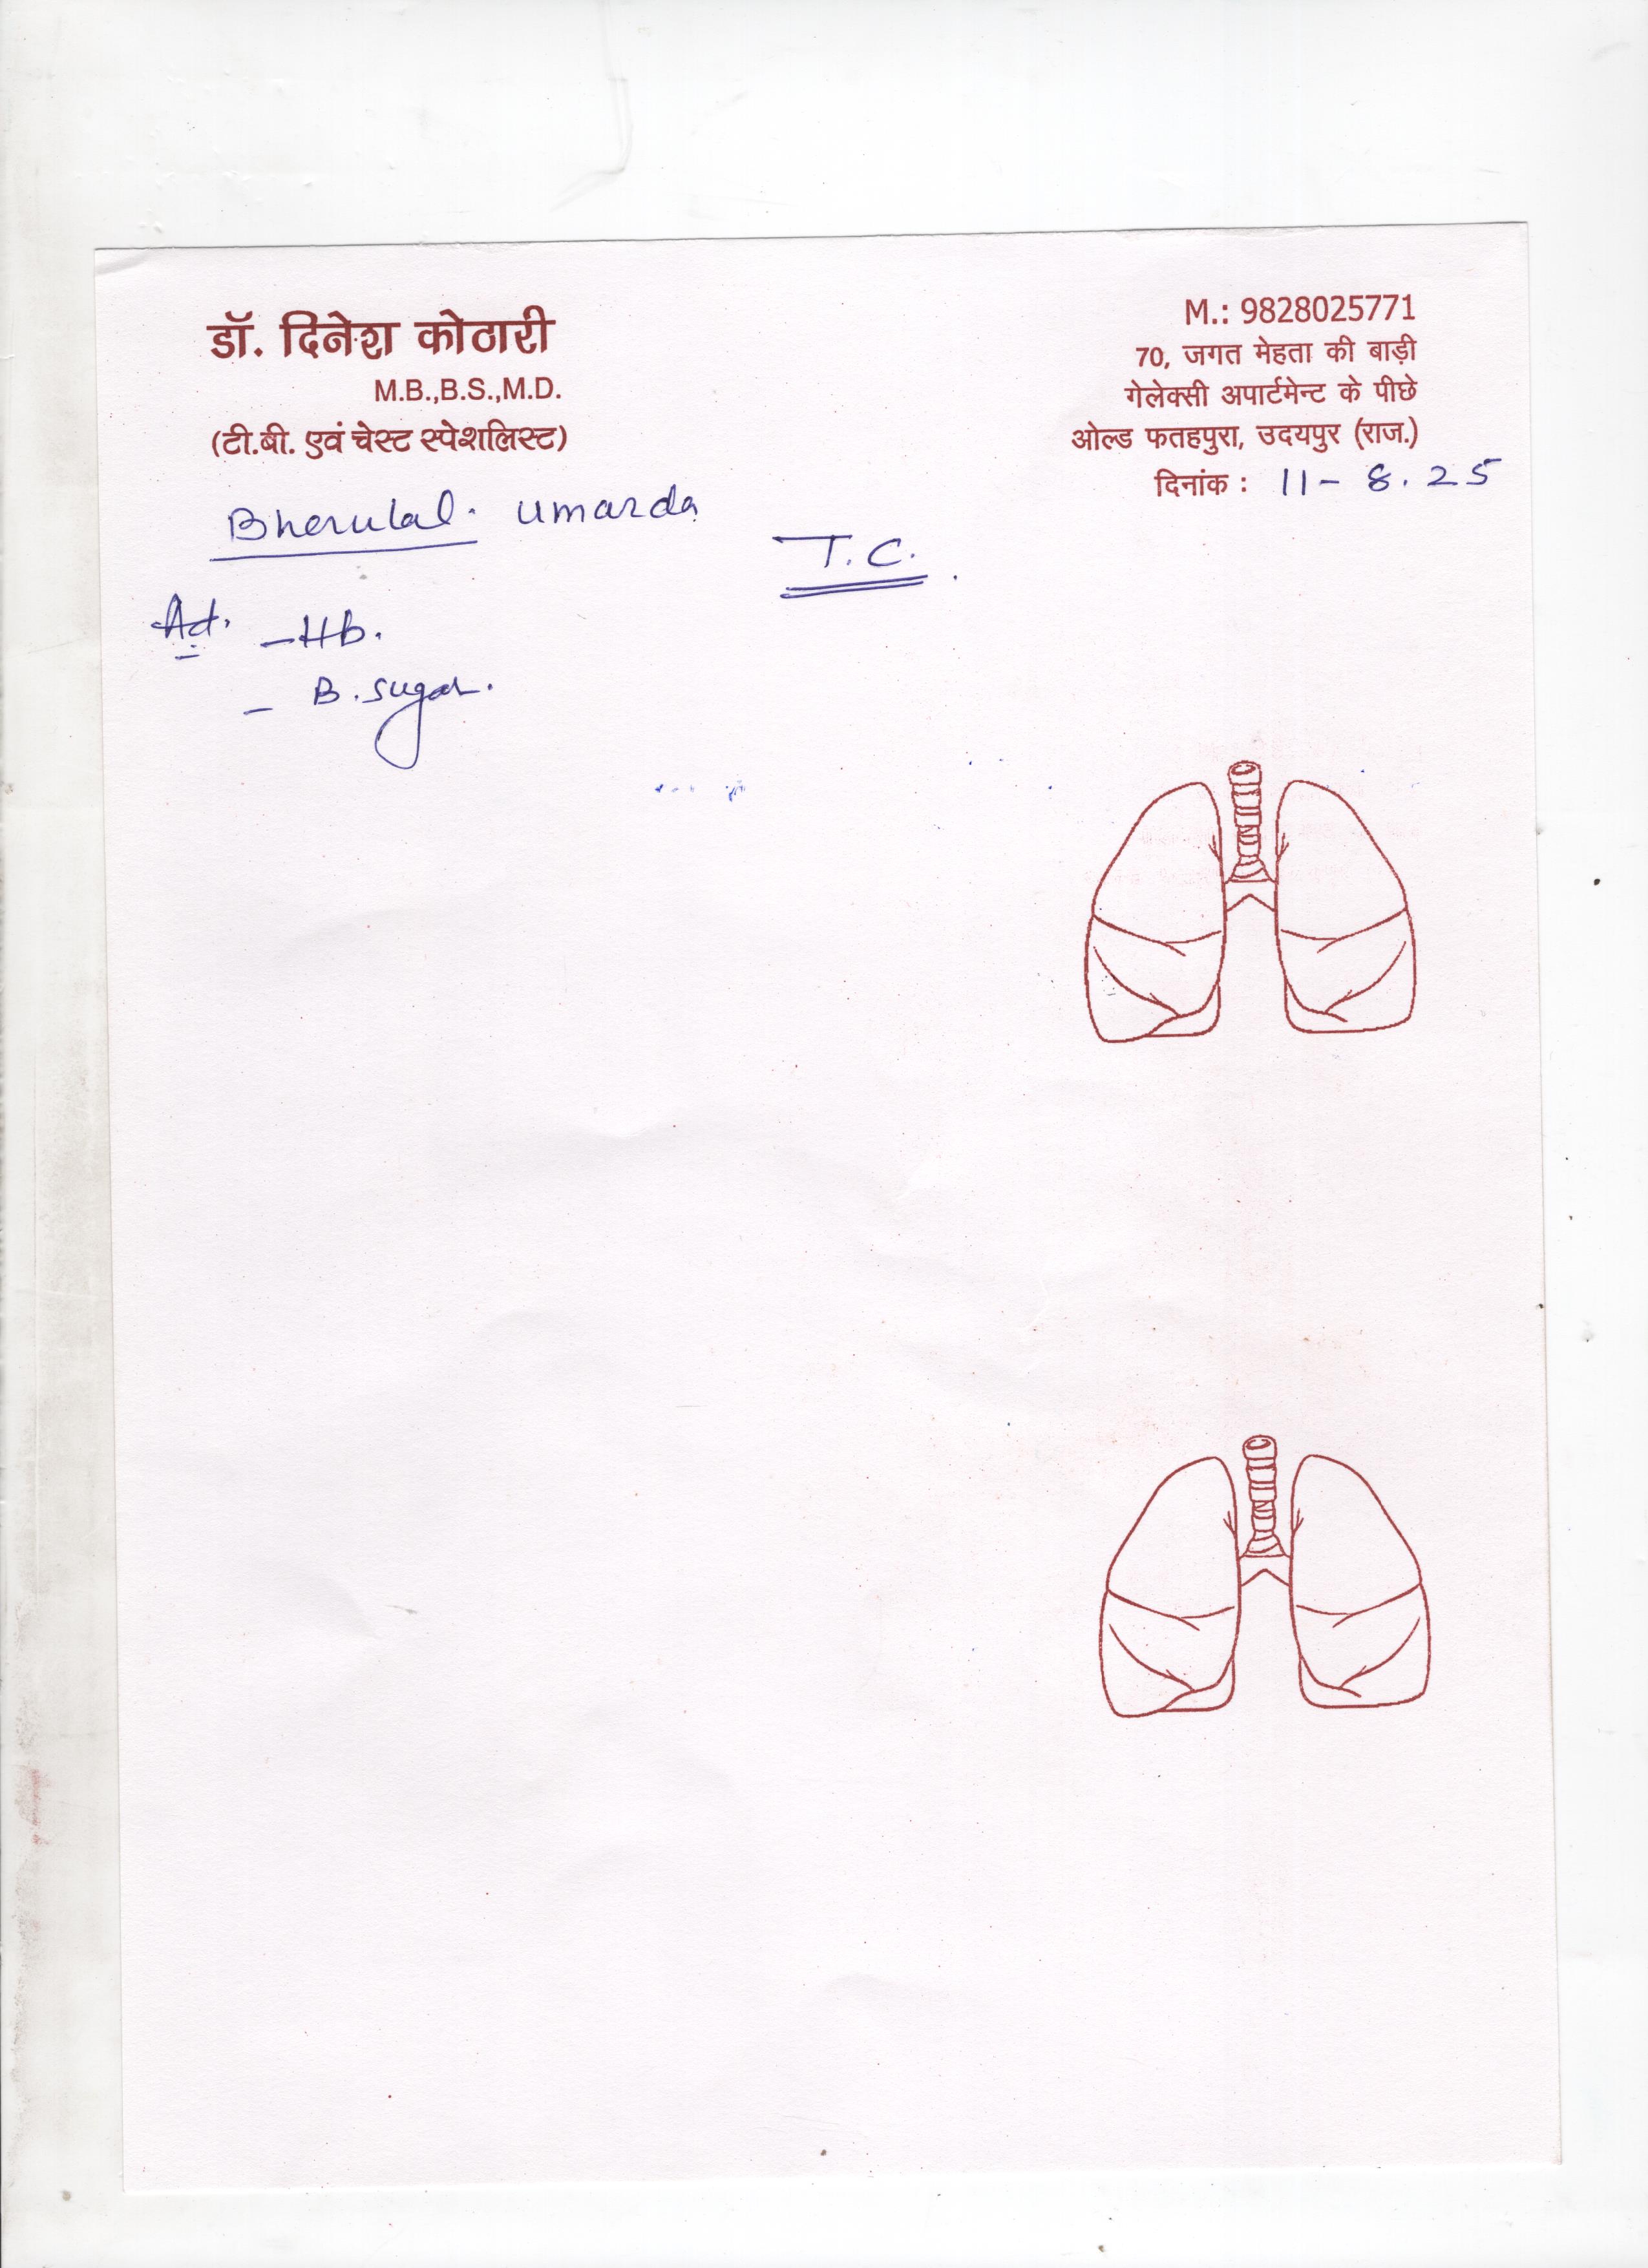 डॉ. दिनेश कोठारी
M.B.,B.S.,M.D.
(टी.बी. एवं चेस्ट स्पेशलिस्ट)
M.: 9828025771
70, जगत मेहता की बाड़ी
गेलेक्सी अपार्टमेन्ट के पीछे
ओल्ड फतहपुरा, उदयपुर (राज.)
दिनांक : 11-8.25
Bherulal. Umarda
T.C.
Ad. - Hb.
- B. sugar.